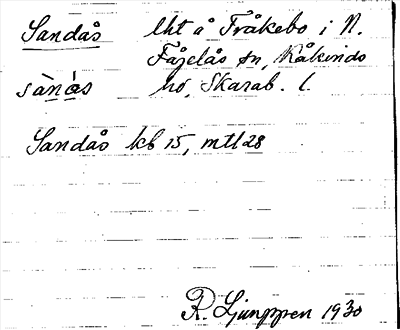 Sandås lht å Fråkebo i N.
Fågelås sn, Kåkinds
sànás hd, Skarab. l.
Sandås kb 15, mtl 28
R. Ljunggren 1930